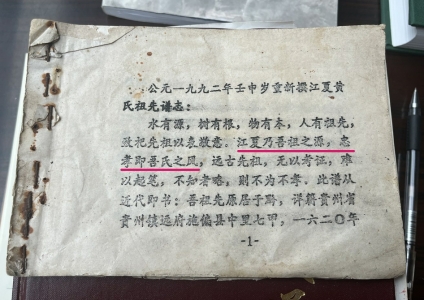 公元一九九二年壬申岁重新撰江夏黄
氏祖先谱志：
水有源，树有根，物有本，人有祖先，
改祀先祖以表敬意。江夏乃吾祖之源，忠
孝即吾氏之风，远古先祖，无以考证，难
以起笔，不知者略，则不为不孝。此谱从
近代即书：吾祖先原居于黔，详籍贵州省
贵州镇远府施偏县中里七甲，一六二〇年
-1-